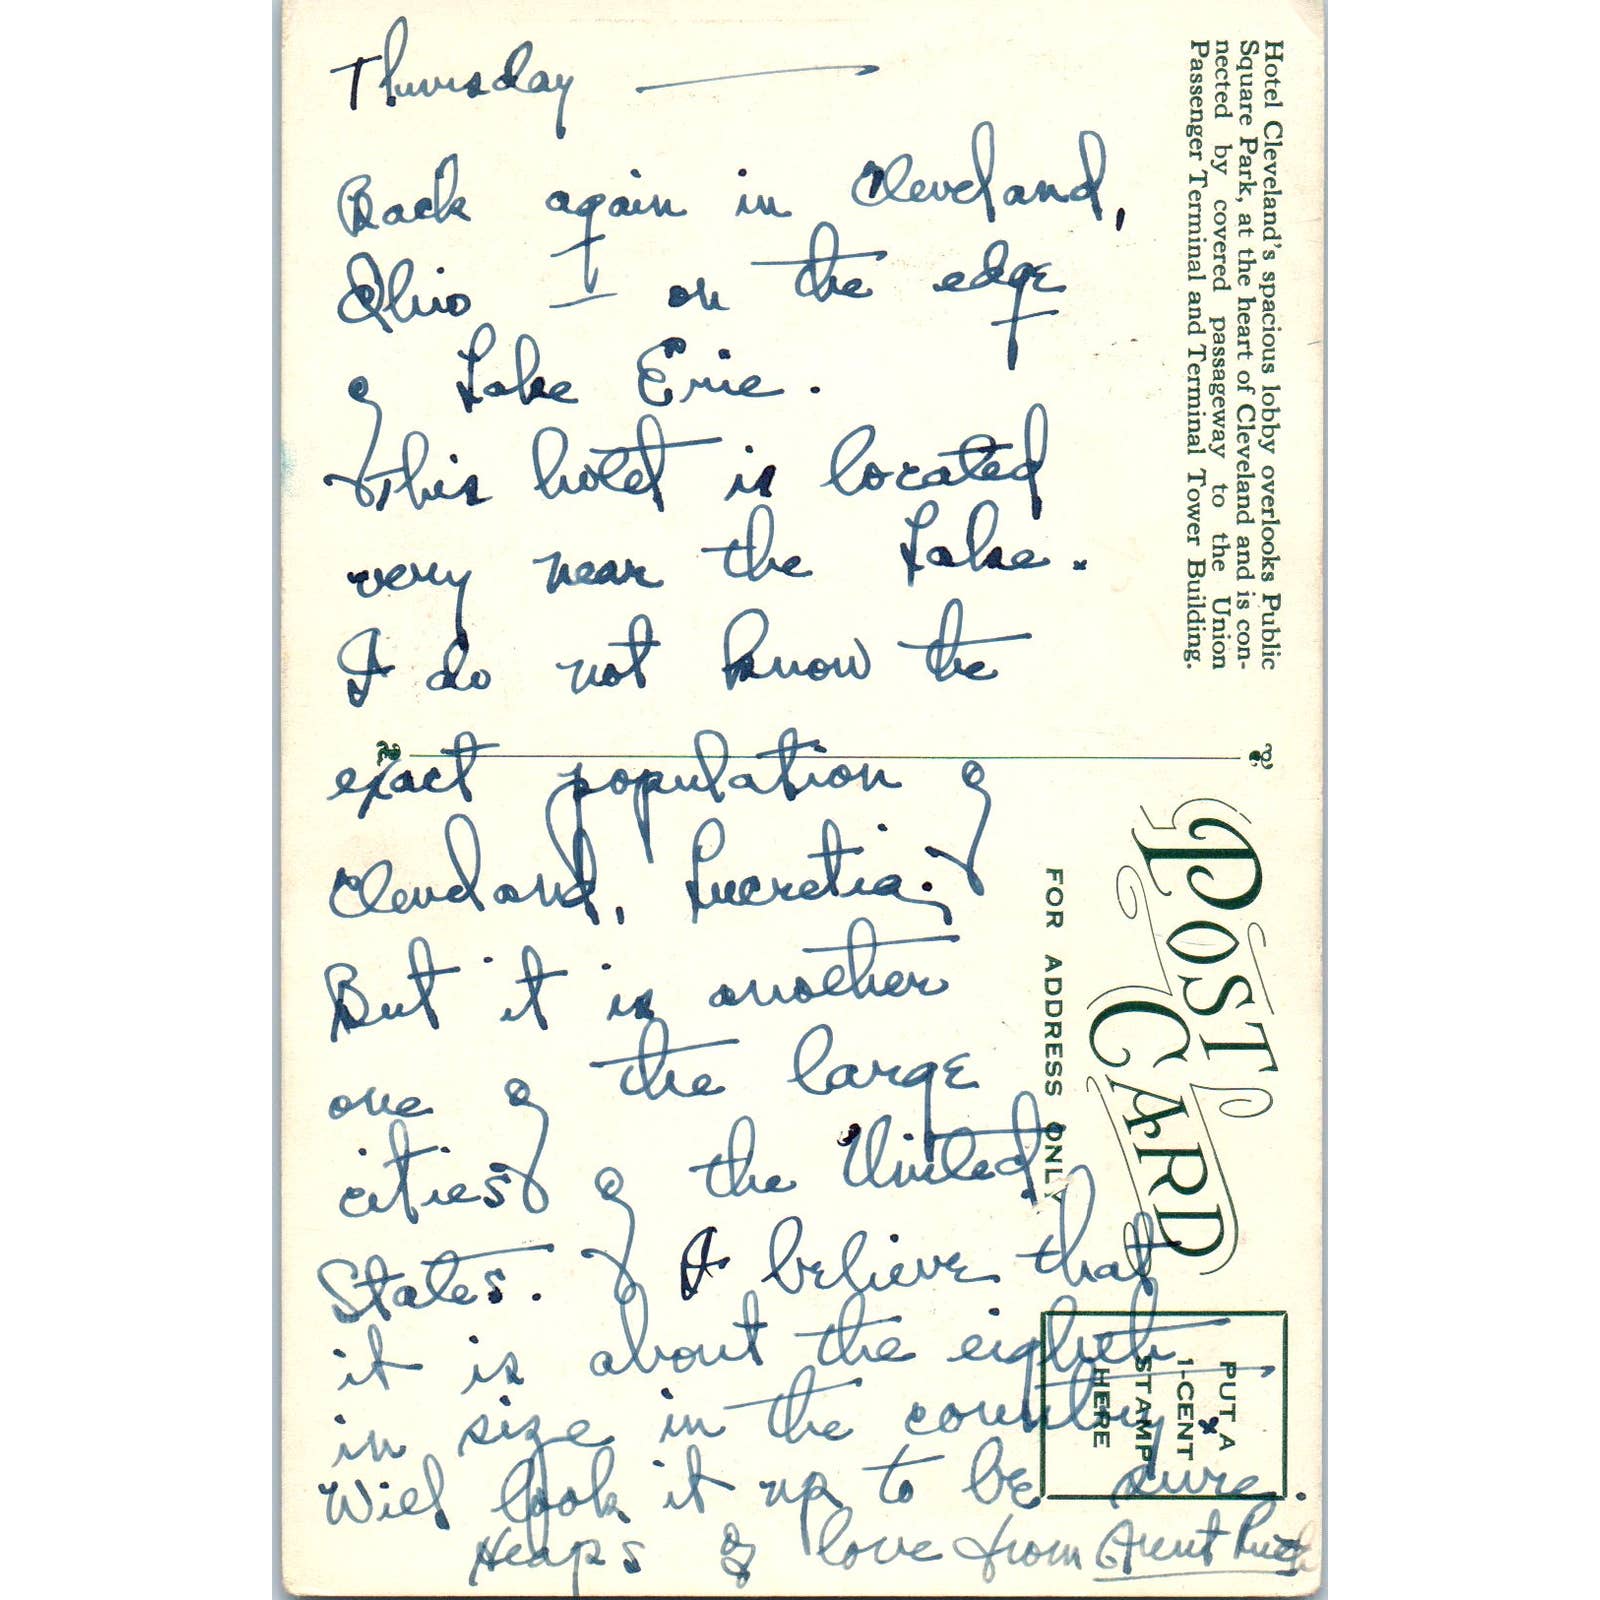 Thursday —
Back again in Cleveland,
Ohio — on the edge
of Lake Erie.
This hotel is located
very near the Lake.
I do not know the
exact population of
Cleveland, Lucretia.
But it is another
one of the large
cities of the United
States. I believe that
it is about the eighth
in size in the country
Will look it up to be sure.
Heaps of love from Aunt Ruth
Hotel Cleveland's spacious lobby overlooks Public
Square Park, at the heart of Cleveland and is con-
nected by covered passageway to the Union
Passenger Terminal and Terminal Tower Building.
POST CARD
FOR ADDRESS ONLY
PUT A
1-CENT
STAMP
HERE